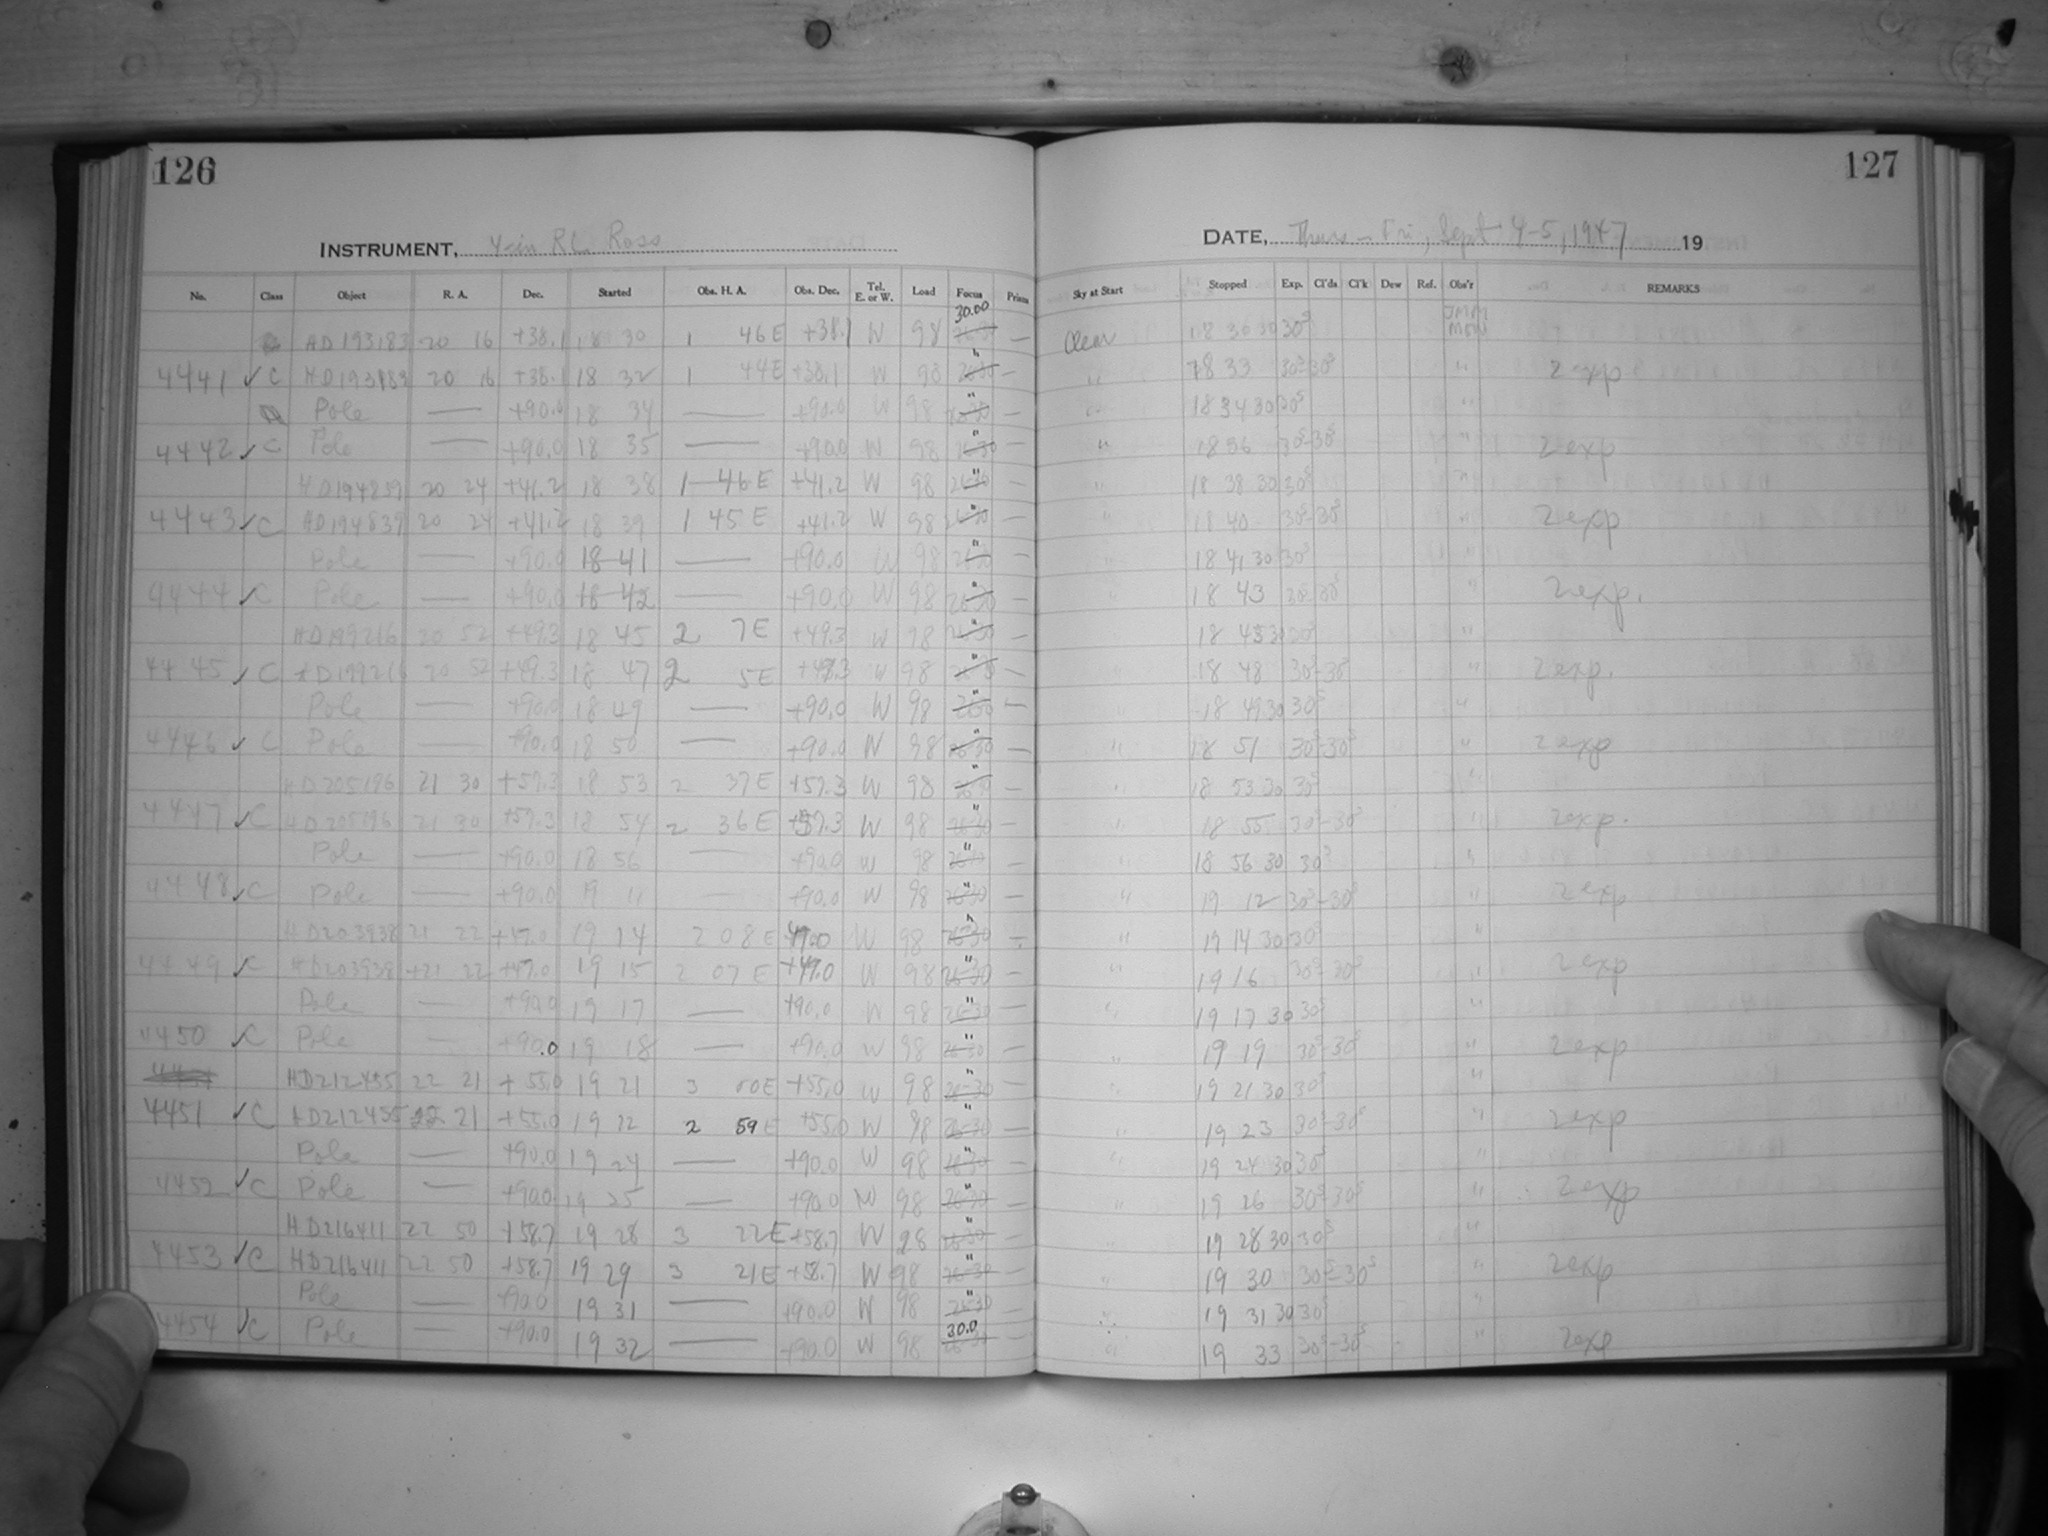 126
127
INSTRUMENT, 4-in RL Ross
DATE, Thurs - Fri, Sept 4-5, 1947 19
No. Class Object R. A. Dec. Started Obs. H. A. Obs. Dec. Tel. E. or W. Load Focus Prism Sky at Start Stopped Exp. Cl'ds Cl'k Dew Ref. Obs'r REMARKS
30.00
HD193183 20 16 +38.1 18 30 1 46E +38.1 W 98 — Clear 18 30 30 30s
4441 ✓ C 20 16 +38.1 18 32 1 44E +38.1 W 98 " — " 18 33 30s-30s " 2 exp
Pole — +90.0 18 34 — +90.0 W 98 " — " 18 34 30 30s "
4442 ✓ C Pole — +90.0 18 35 — +90.0 W 98 " — " 18 36 30s-30s " 2 exp
HD194839 20 24 +41.2 18 38 1 46E +41.2 W 98 " — " 18 38 30 30s "
4443 ✓ C HD194839 20 24 +41.2 18 39 1 45E +41.2 W 98 " — " 18 40 30s-30s " 2 exp
Pole — +90.0 18 41 — +90.0 W 98 " — " 18 41 30 30s "
4444 ✓ C Pole — +90.0 18 42 — +90.0 W 98 " — " 18 43 30s-30s " 2 exp.
HD199216 20 52 +49.3 18 45 2 7E +49.3 W 98 " — " 18 45 30 30s "
4445 ✓ C HD199216 20 52 +49.3 18 47 2 5E +49.3 W 98 " — " 18 48 30s-30s " 2 exp.
Pole — +90.0 18 49 — +90.0 W 98 " — " 18 49 30 30s "
4446 ✓ C Pole — +90.0 18 50 — +90.0 W 98 " — " 18 51 30s-30s " 2 exp
HD205196 21 30 +57.3 18 53 2 37E +57.3 W 98 " — " 18 53 30 30s
4447 ✓ C HD205196 21 30 +57.3 18 54 2 36E +57.3 W 98 " — " 18 55 30s-30s " 2 exp.
Pole — +90.0 18 56 — +90.0 W 98 " — " 18 56 30 30s "
4448 ✓ C Pole — +90.0 19 11 — +90.0 W 98 " — " 19 12 30s-30s " 2 exp
HD203938 21 22 +47.0 19 14 2 08E +47.0 W 98 " — " 19 14 30 30s "
4449 ✓ C HD203938 21 22 +47.0 19 15 2 07E +47.0 W 98 " — " 19 16 30s-30s " 2 exp
Pole — +90.0 19 17 — +90.0 W 98 " — " 19 17 30 30s "
4450 ✓ C Pole — +90.0 19 18 — +90.0 W 98 " — " 19 19 30s-30s " 2 exp
HD212455 22 21 +55.0 19 21 3 00E +55.0 W 98 " — " 19 21 30 30s "
4451 ✓ C HD212455 22 21 +55.0 19 22 2 59E +55.0 W 98 " — " 19 23 30s-30s " 2 exp
Pole — +90.0 19 24 — +90.0 W 98 " — " 19 24 30 30s
4452 ✓ C Pole — +90.0 19 25 — +90.0 W 98 " — " 19 26 30s-30s " 2 exp
HD216411 22 50 +58.7 19 28 3 22E +58.7 W 98 " — 19 28 30 30s "
4453 ✓ C HD216411 22 50 +58.7 19 29 3 21E +58.7 W 98 " — " 19 30 30s-30s " 2 exp
Pole — +90.0 19 31 — +90.0 W 98 " — " 19 31 30 30s "
4454 ✓ C Pole — +90.0 19 32 — +90.0 W 98 30.0 — " 19 33 30s-30s " 2 exp